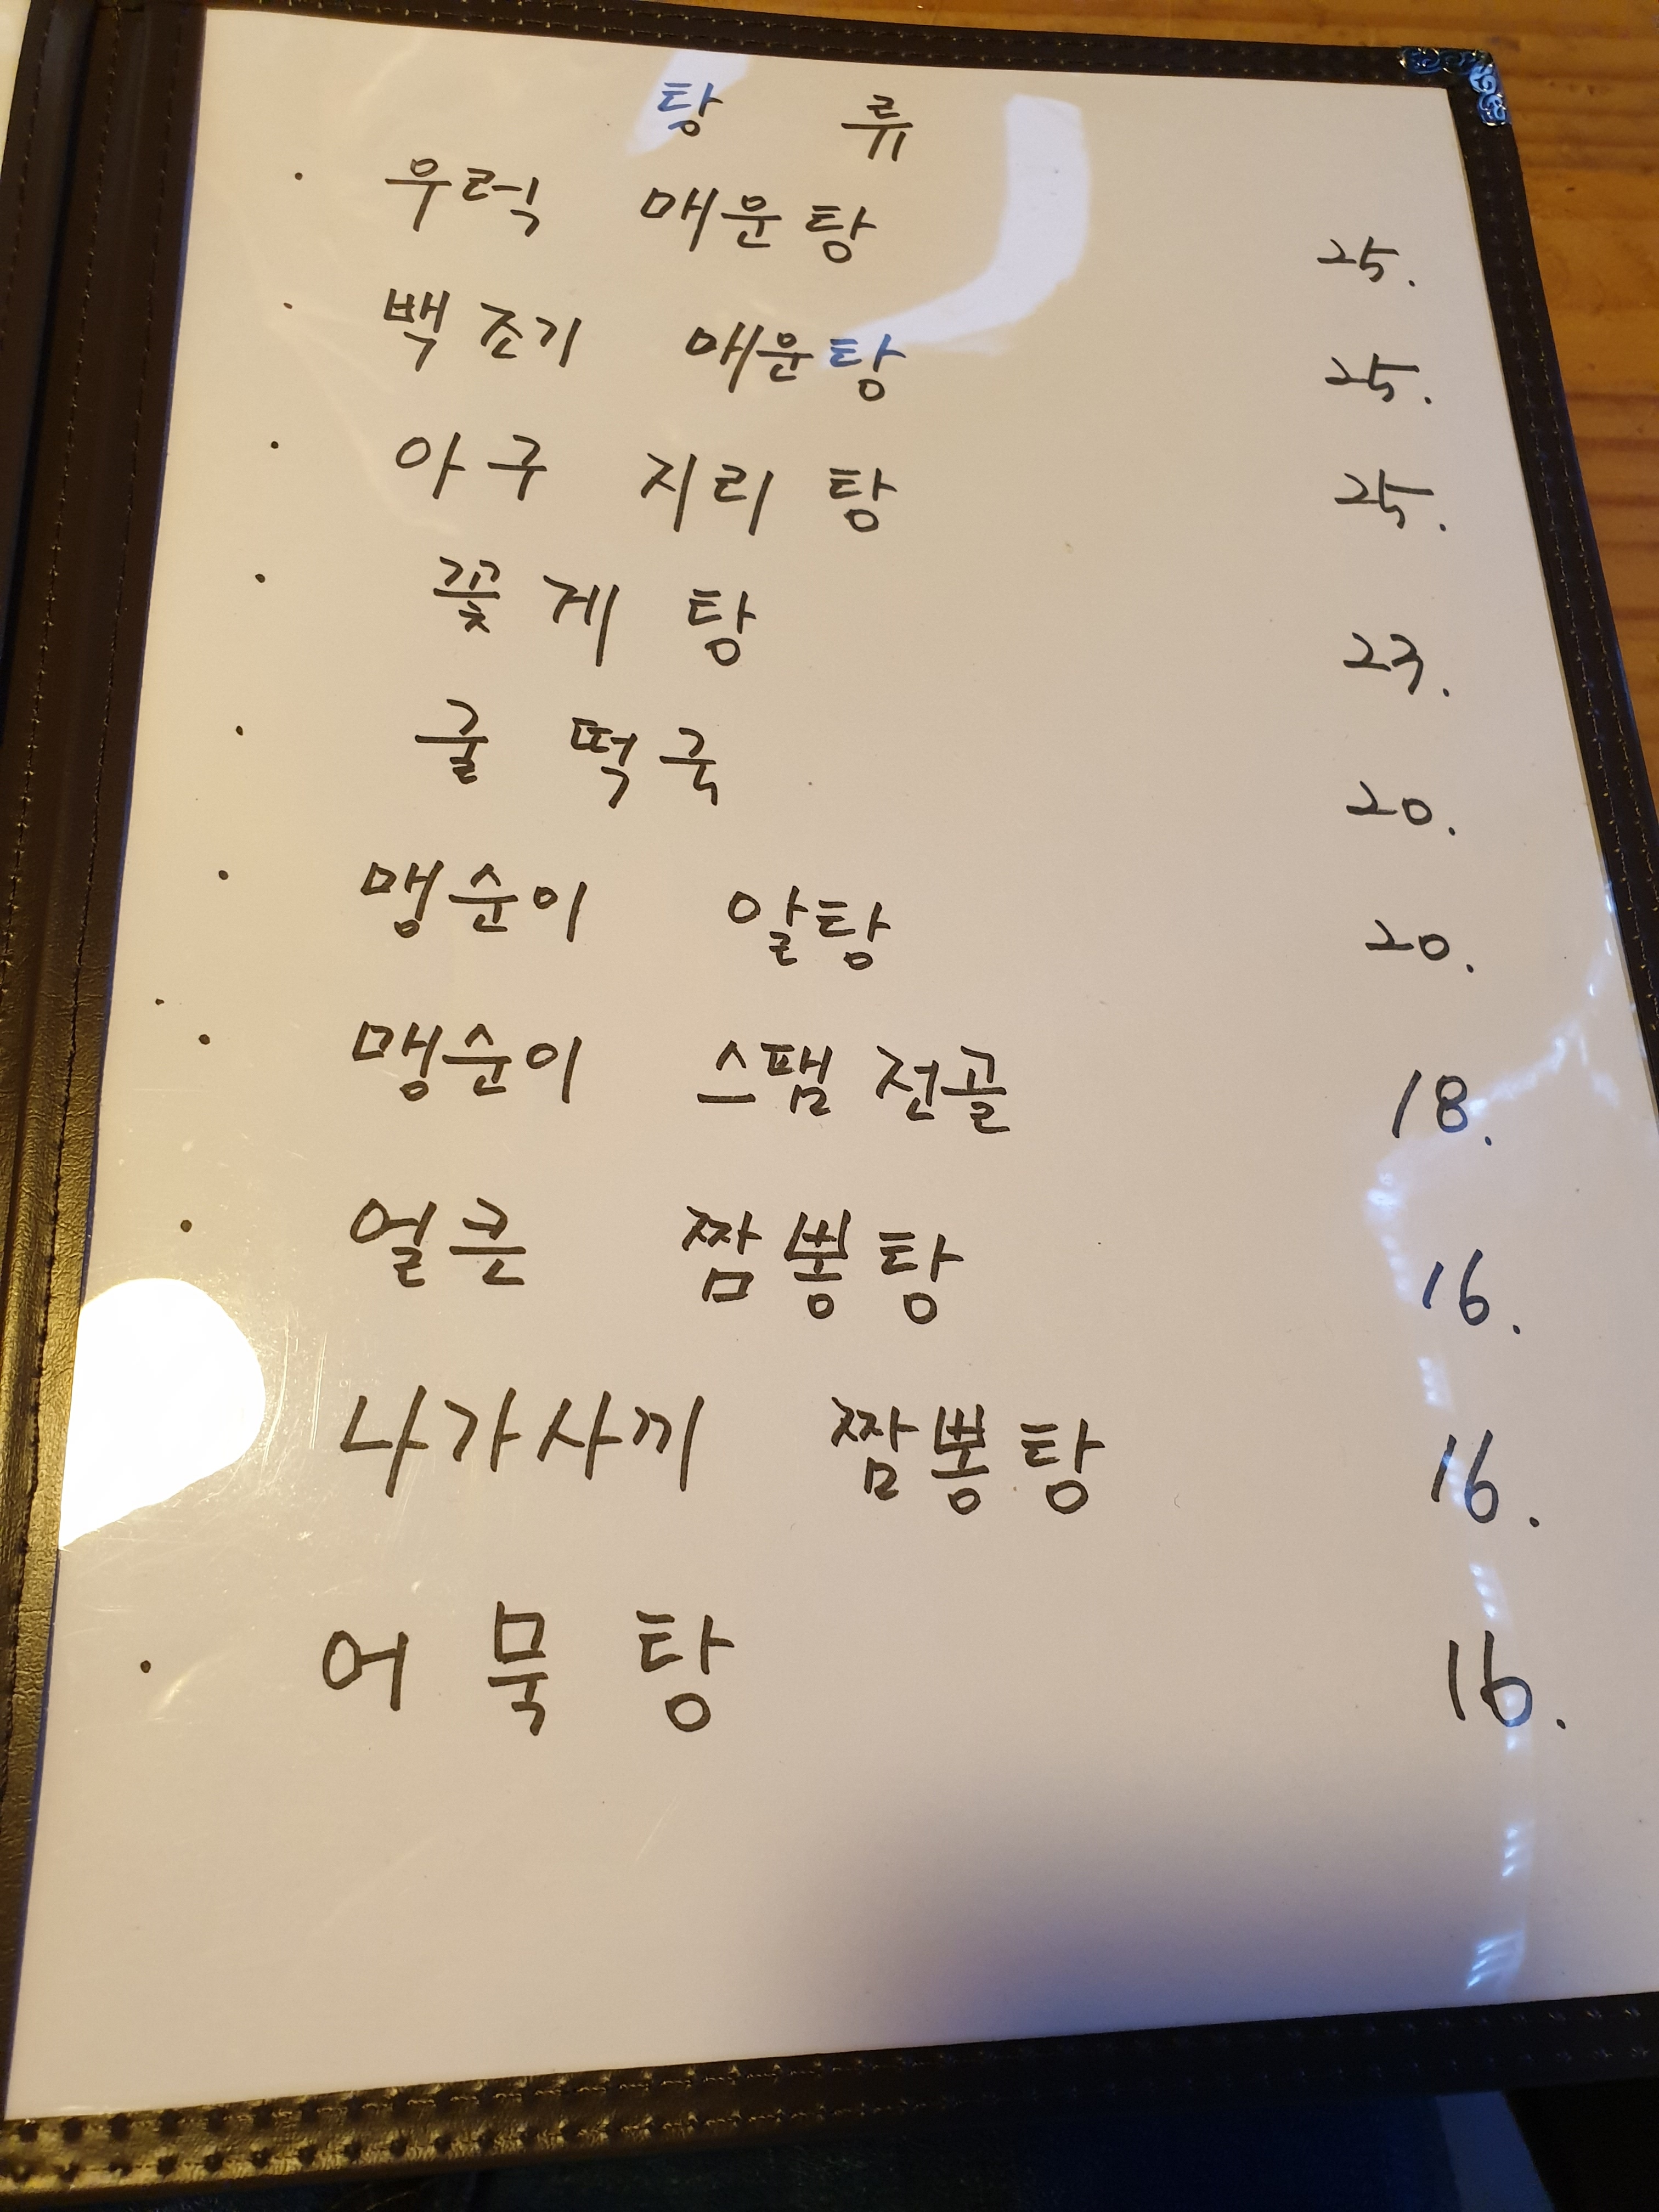 탕 류
· 우럭 매운탕 25.
· 백조기 매운탕 25.
· 아구 지리탕 25.
· 꽃게탕 23.
· 굴 떡국 20.
· 맹순이 알탕 20.
· 맹순이 스팸 전골 18.
· 얼큰 짬뽕탕 16.
나가사끼 짬뽕탕 16.
· 어묵탕 16.